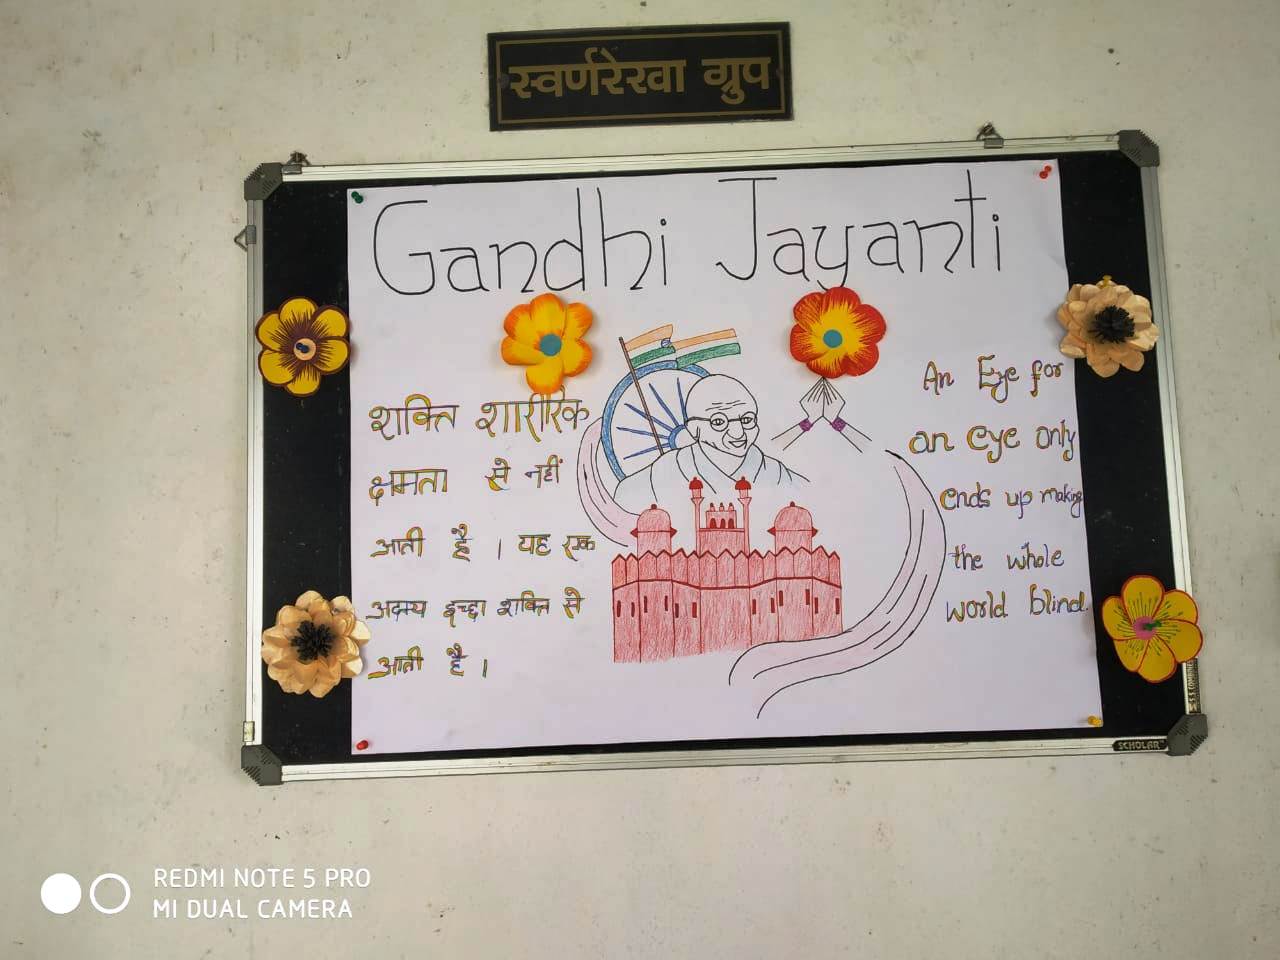 स्वर्णरेखा ग्रुप
Gandhi Jayanti
शक्ति शारीरिक
क्षमता से नहीं
आती है । यह एक
अदम्य इच्छा शक्ति से
आती है ।
An Eye for
an eye only
ends up making
the whole
world blind.
SCHOLAR
REDMI NOTE 5 PRO
MI DUAL CAMERA